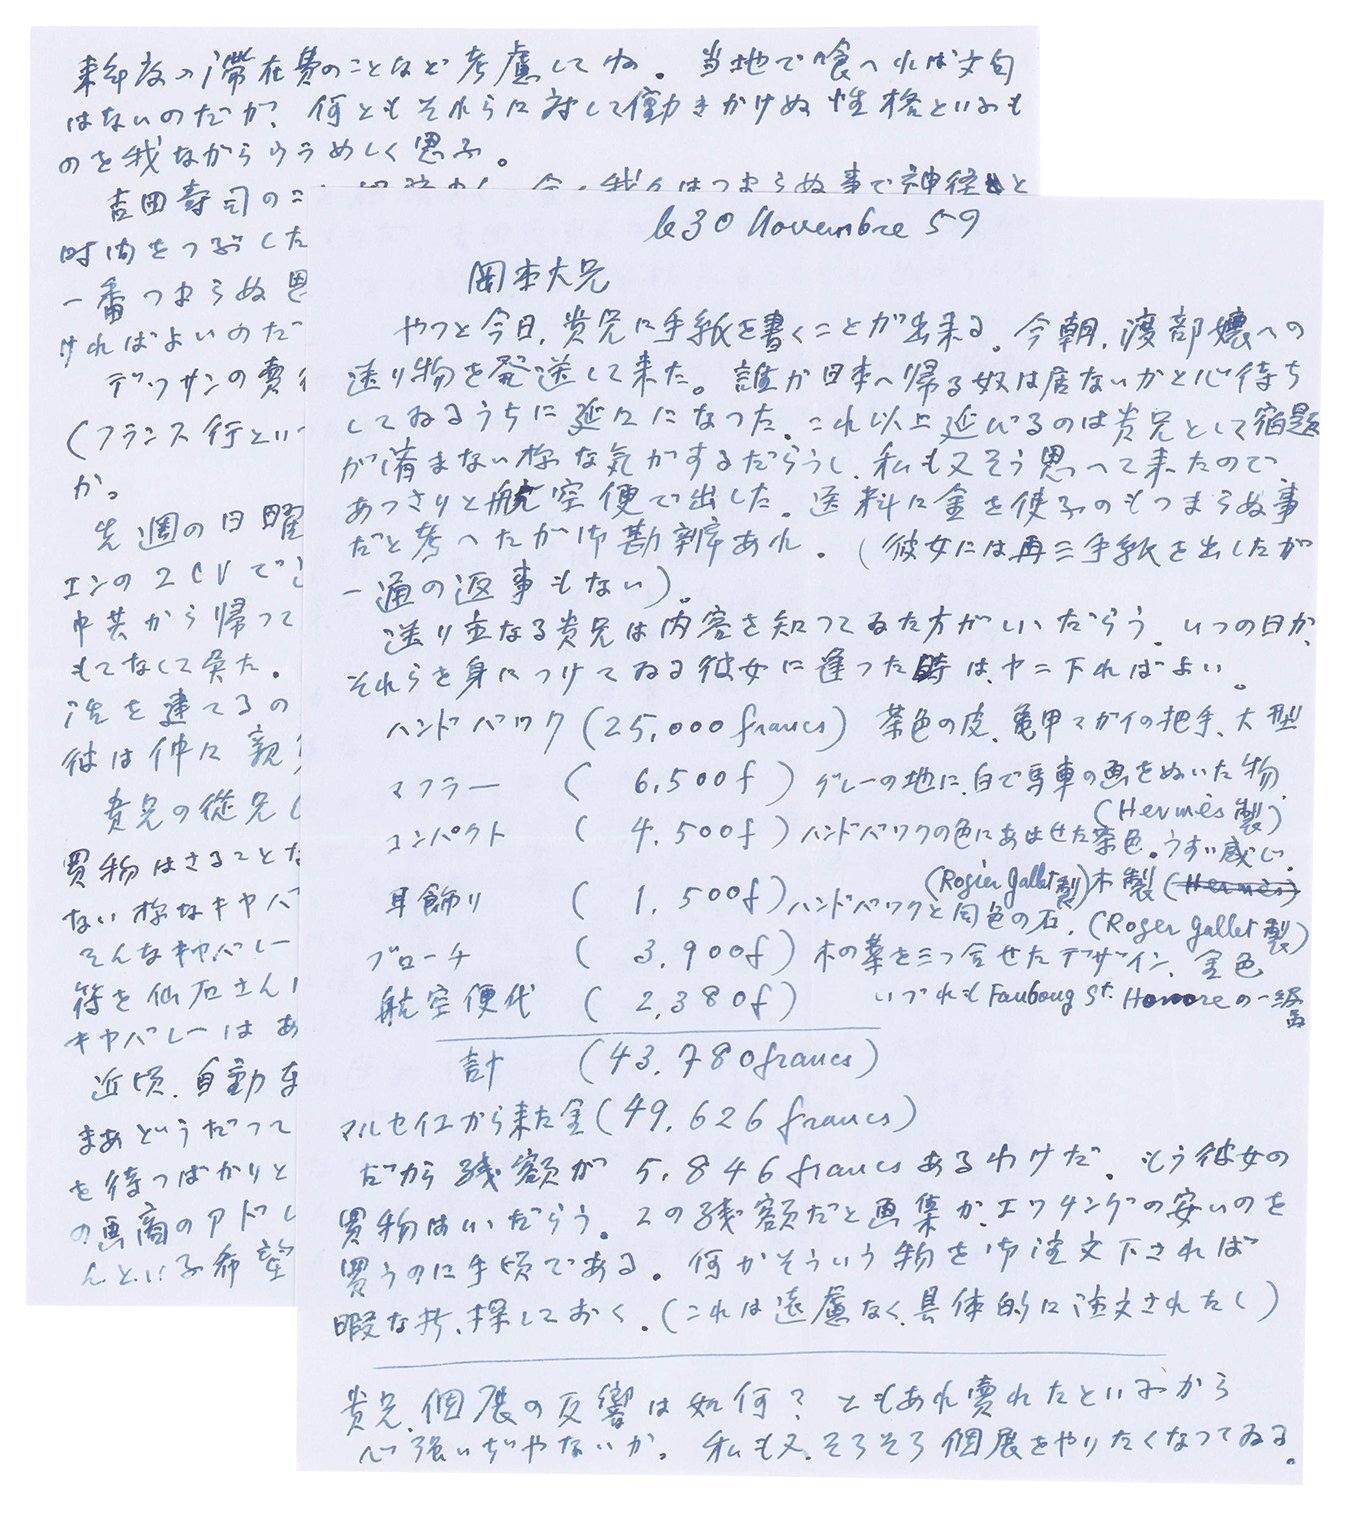 le 30 Novembre 59
岡本大兄
やつと今日、貴兄に手紙を書くことが出来る。今朝、渡部嬢への
送り物を発送して来た。誰か日本へ帰る奴は居ないかと心待ち
してゐるうちに延々になつた。これ以上延びるのは貴兄として宿題
が済まない様な気がするだらうし、私も又そう思つて来たので
あつさりと航空便で出した。送料に金を使ふのもつまらぬ事
だと考へたが御勘辨あれ。(彼女には再三手紙を出したが
一通の返事もない)。
送り主なる貴兄は内容を知つてゐた方がいいだらう。いつの日か、
それらを身につけてゐる彼女に逢つた時は、ヤニ下ればよい。
ハンドバック (25,000 francs) 茶色の皮、亀甲マガイの把手、大型
マフラー ( 6,500f ) グレーの地に、白で馬車の画をぬいた物
(Hermès製)
コンパクト ( 4,500f ) ハンドバックの色にあはせた茶色。うすい感じ。
(Rogier gallet製) 木製 (Hermès)
耳飾り ( 1,500f ) ハンドバックと同色の石。(Roger gallet製)
ブローチ ( 3,900f ) 木の葉を三つ合せたデザイン、金色
航空便代 ( 2,380f ) いづれも Fauboug St. Honore の一留
計 (43,780francs)
マルセイエから来た金 (49,626 francs)
だから残額が 5,846 francs あるわけだ。もう彼女の
買物はいいだらう。この残額だと画集か、エツチングの安いのを
買うのに手頃である。何かそういう物を御注文下されば
暇な折、探しておく。(これは遠慮なく、具体的に注文されたし)
貴兄、個展の反響は如何? ともあれ売れたといふから
心強いぢやないか。私も又、そろそろ個展をやりたくなつてゐる。
来年度の滞在費のことなど考慮してね。当地で喰へれば文句
はないのだが、何ともそれらに対して働きかけぬ性格といふも
のを我ながらうらめしく思ふ。
吉田寿司のこ
時間をつぶした
一番つまらぬ思
ければよいのだ
デッサンの売
(フランス行とい
か。
先週の日曜
エンの2CVで
中共から帰つて
もてなして呉た。
活を建てるの
彼は仲々親
貴兄の従兄
買物はさることな
ない様なキャバ
そんなキャバレー
符を仙石さん
キャバレーはあ
近頃、自動車
まあどうだつて
を待つばかりと
の画商のアドレ
んといふ希望